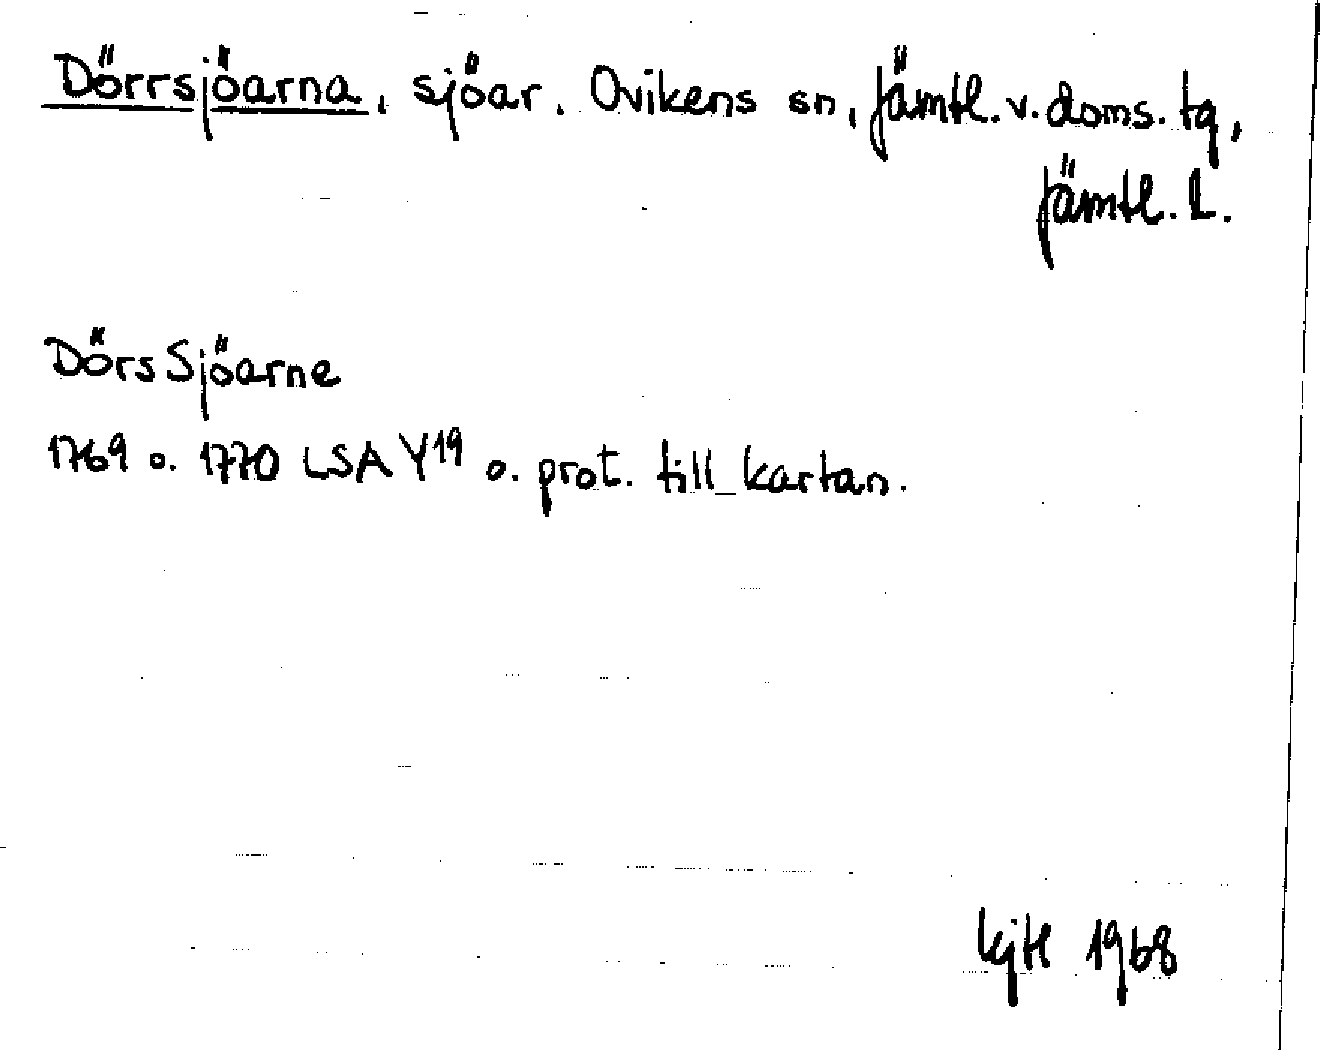 Dörrsjöarna, sjöar. Ovikens sn, Jämtl. v. doms. tg,
Jämtl. L.
DörsSjöarne
1769 o. 1770 LSA Y19 o. prot. till kartan.
1968